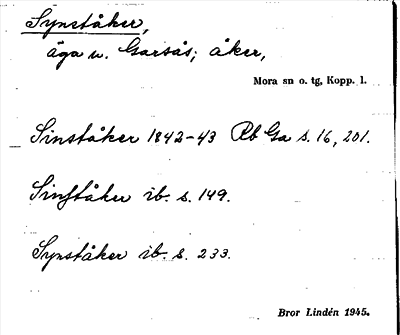 Synståker,
äga u. Garsås; åker,
Mora sn o. tg, Kopp. l.
Sinståker 1842-43 Rb Ga s. 16, 201.
Sinståker ib. s. 149.
Synståker ib. s. 233.
Bror Lindén 1945.